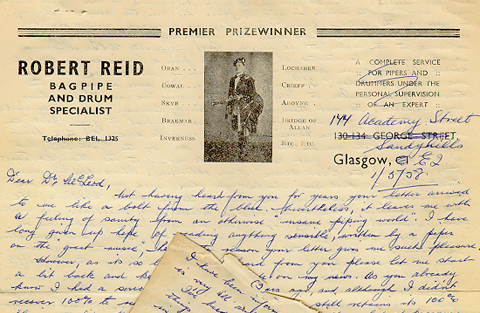 PREMIER PRIZEWINNER
ROBERT REID
BAGPIPE
AND DRUM
SPECIALIST
Telephone: BEL. 1335
OBAN . . .
COWAL . . .
SKYE . . .
BRAEMAR
INVERNESS
LOCHABER
CRIEFF . .
ABOYNE . .
BRIDGE OF
ALLAN
ETC., ETC.
A COMPLETE SERVICE
FOR PIPERS AND ::
DRUMMERS UNDER THE
PERSONAL SUPERVISION
:: OF AN EXPERT
144 Academy Street
130-134 GEORGE STREET,
Sandyhills
Glasgow, E2
1/5/58
Dear Dr McLeod,
Not having heard from you for years your letter arrived
to me like a bolt from the blue. Nevertheless, it leaves me with
a feeling of sanity from an otherwise "insane piping world". I have
long given up hope of reading anything sensible, written by a piper
on the "great music", the reason your letter gives me such pleasure.
However, as its so from you please let me start
a bit back and on my news. As you already
know I had a years ago, and although I didn't
recover 100% to still retains its 100%
I have been
in my
I've been